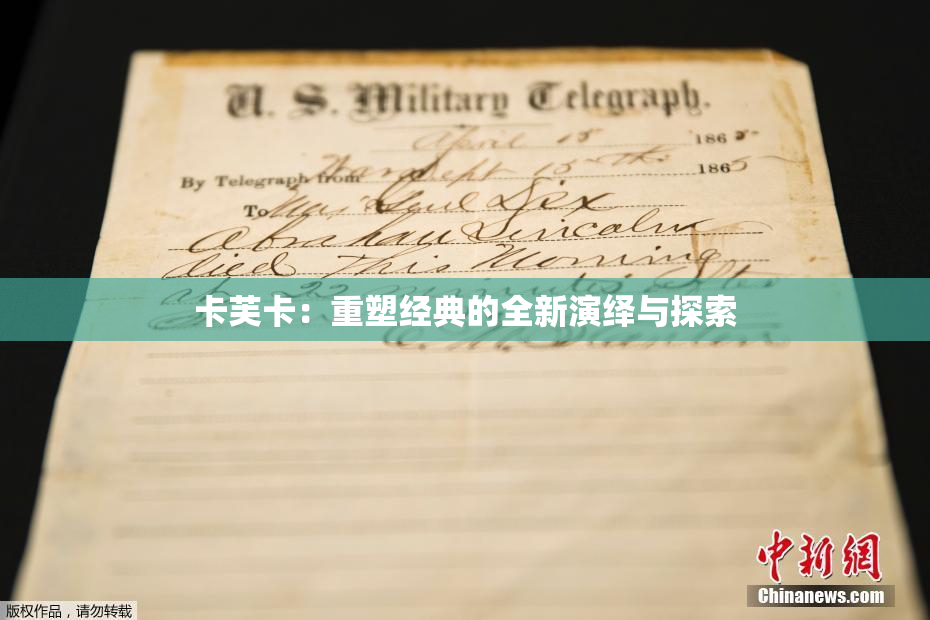 U. S. Military Telegraph.
April 15 1865
By Telegraph from War Dept 15th 1865
To Maj Genl Dix
Abraham Lincoln
died This Morning
at 22 minutes after
卡芙卡：重塑经典的全新演绎与探索
E. M. Stanton
中新网
Chinanews.com
版权作品，请勿转载